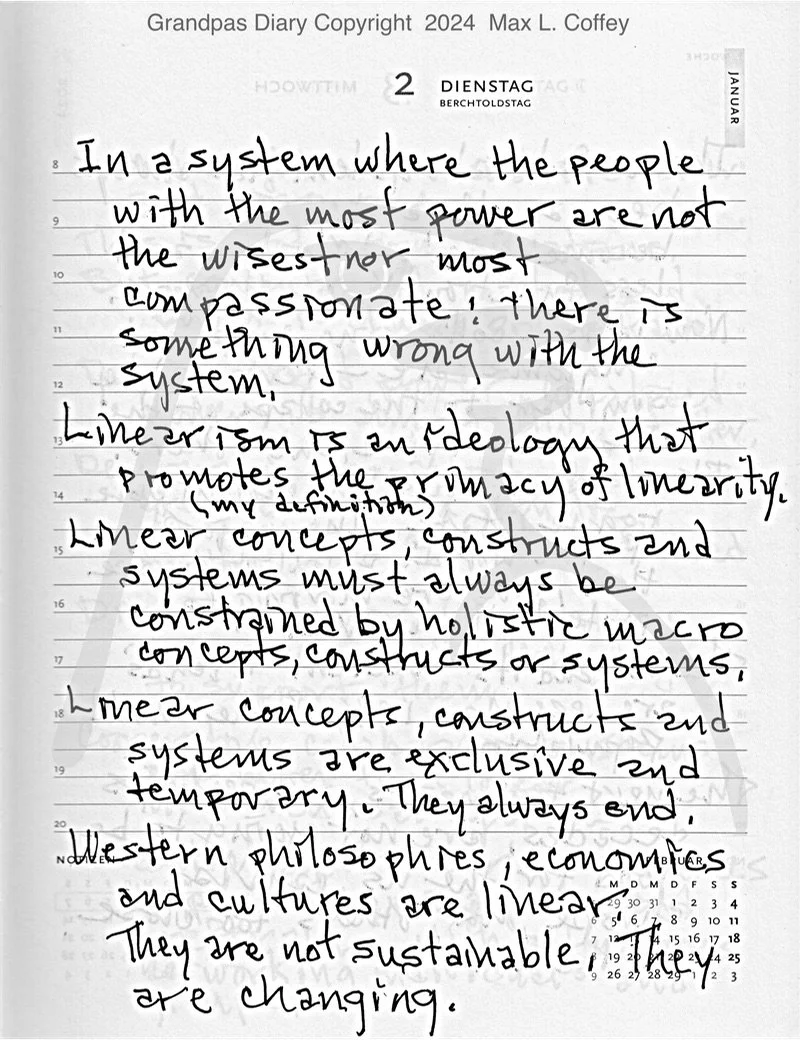 Grandpas Diary Copyright 2024 Max L. Coffey
2 DIENSTAG
BERCHTOLDSTAG
JANUAR
MITTWOCH
8 In a system where the people
9 with the most power are not
the wisest nor most
10 compassionate; there is
11 something wrong with the
12 system.
13 Linearism is an ideology that
promotes the primacy of linearity.
14 (my definition)
15 Linear concepts, constructs and
systems must always be
16 constrained by holistic macro
17 concepts, constructs or systems.
18 Linear concepts, constructs and
19 systems are exclusive and
temporary. They always end.
20
NOTIZEN
Western philosophies, economies
FEBRUAR
M D M D F S S
and cultures are linear.
29 30 31 1 2 3 4
6 5 6 7 8 9 10 11
They are not sustainable. They
7 12 13 14 15 16 17 18
8 19 20 24 25
are changing.
9 26 27 28 29 1 2 3